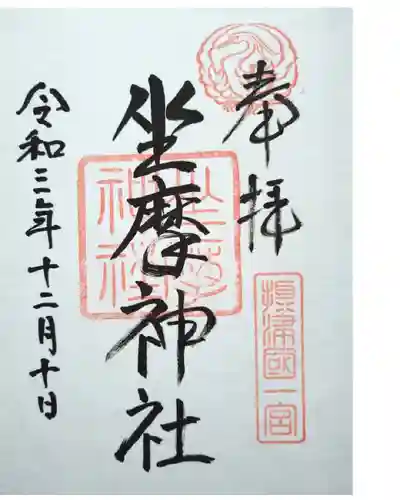 奉拝
摂津國一宮
坐摩神社
坐摩神社
令和三年十二月十日